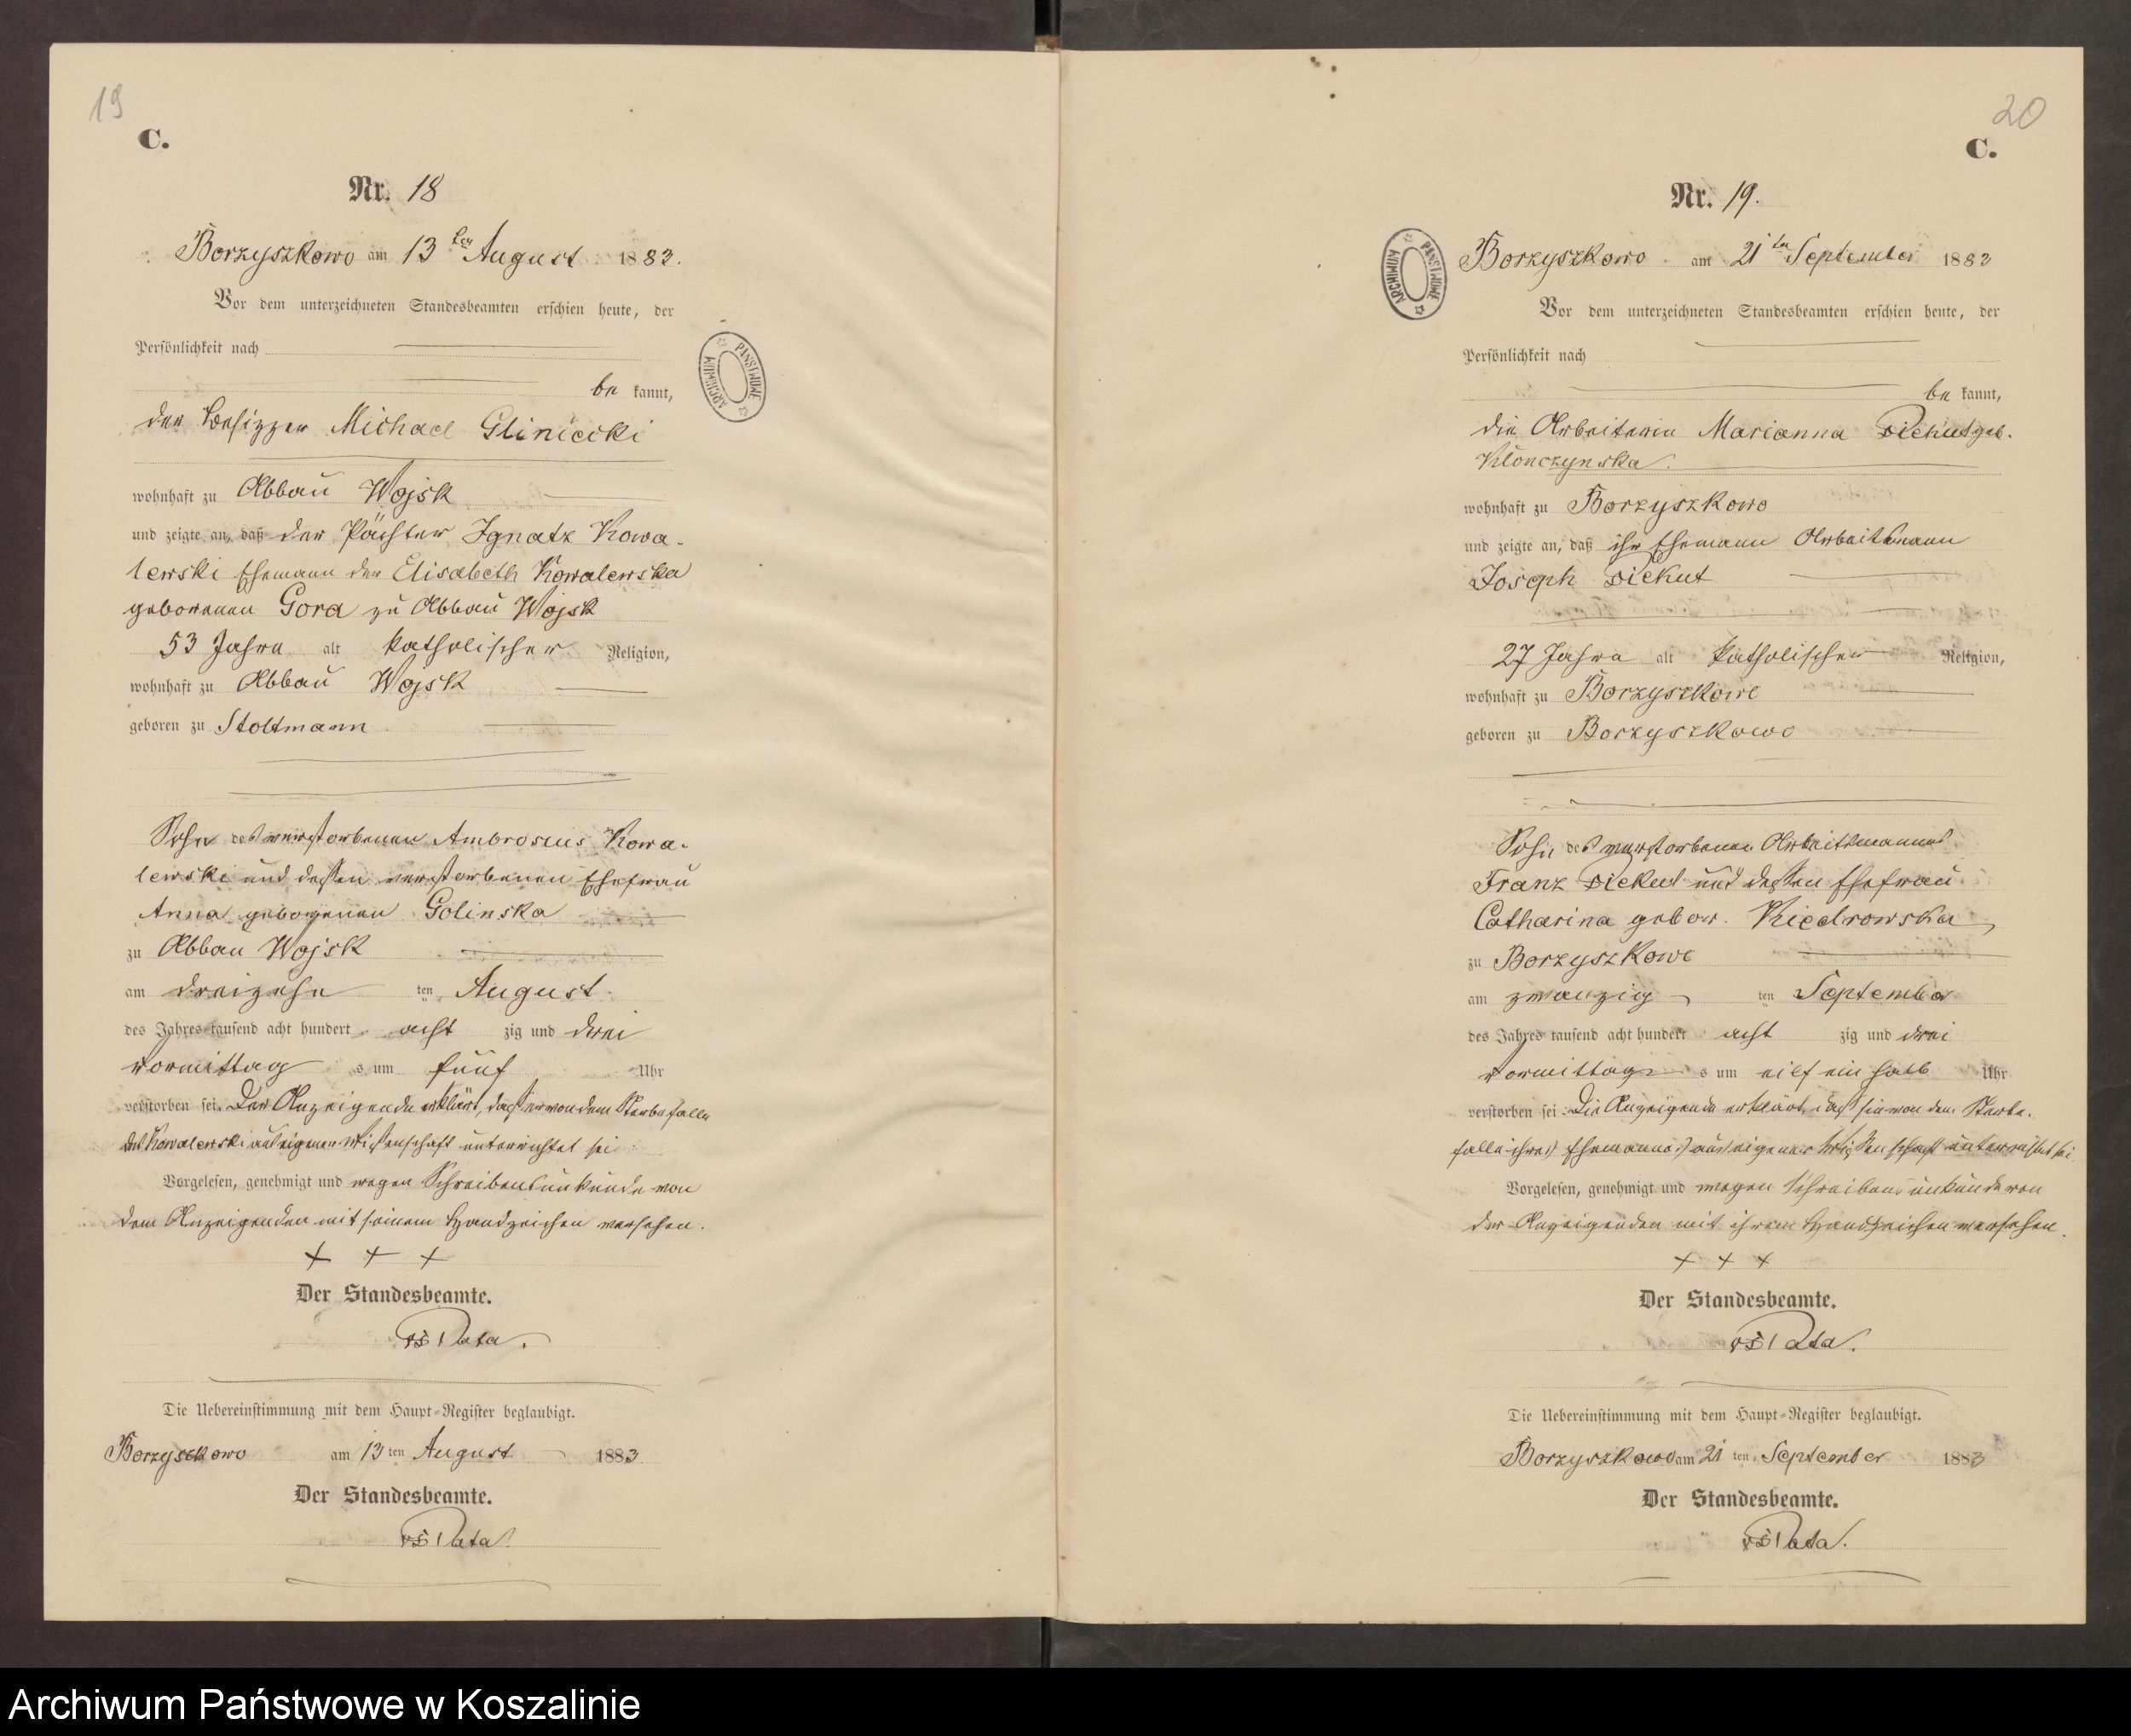 19
C.
Nr. 18
Borzyszkowo am 13ten August 1883.
Vor dem unterzeichneten Standesbeamten erschien heute, der
Persönlichkeit nach
be kannt,
der Besizzer Michael Gliniecki
wohnhaft zu Abbau Wojsk
und zeigte an, daß der Pächter Ignatz Kowa-
lewski Ehemann der Elisabeth Kowalewska
geborenen Gora zu Abbau Wojsk
53 Jahre alt katholischer Religion,
wohnhaft zu Abbau Wojsk
geboren zu Stoltmann
Sohn des verstorbenen Ambrosius Kowa-
lewski und dessen verstorbenen Ehefrau
Anna geborenen Golinska
zu Abbau Wojsk
am dreizehn ten August
des Jahres tausend acht hundert acht zig und drei
Vormittag s um fünf Uhr
verstorben sei. Der Anzeigende erklärt, daß er von dem Sterbefalle
des Kowalewski aus eigener Wissenschaft unterrichtet sei
Vorgelesen, genehmigt und wegen Schreibensunkunde von
dem Anzeigenden mit seinem Handzeichen versehen.
+ + +
Der Standesbeamte.
Pata.
Die Uebereinstimmung mit dem Haupt-Register beglaubigt.
Borzyszkowo am 13 ten August 1883
Der Standesbeamte.
Pata.
ARCHIWUM PAŃSTWOWE
20
C.
Nr. 19.
Borzyszkowo am 21ten September 1883
Vor dem unterzeichneten Standesbeamten erschien heute, der
Persönlichkeit nach
be kannt,
die Arbeiterin Marianna Piekut geb.
Klonczynska
wohnhaft zu Borzyszkowo
und zeigte an, daß ihr Ehemann Arbeitsmann
Joseph Piekut
27 Jahre alt katholischer Religion,
wohnhaft zu Borzyszkowo
geboren zu Borzyszkowo
Sohn des verstorbenen Arbeitsmannes
Franz Piekut und dessen Ehefrau
Catharina gebor. Kiedrowska
zu Borzyszkowo
am zwanzig ten September
des Jahres tausend acht hundert acht zig und drei
Vormittag s um eilf ein halb Uhr
verstorben sei. Die Anzeigende erklärt, daß sie von dem Sterbe-
falle ihres Ehemannes aus eigener Wissenschaft unterrichtet sei
Vorgelesen, genehmigt und wegen Schreibensunkunde von
der Anzeigenden mit ihrem Handzeichen versehen.
+ + +
Der Standesbeamte.
Pata.
Die Uebereinstimmung mit dem Haupt-Register beglaubigt.
Borzyszkowo am 21 ten September 1883
Der Standesbeamte.
Pata.
ARCHIWUM PAŃSTWOWE
Archiwum Państwowe w Koszalinie